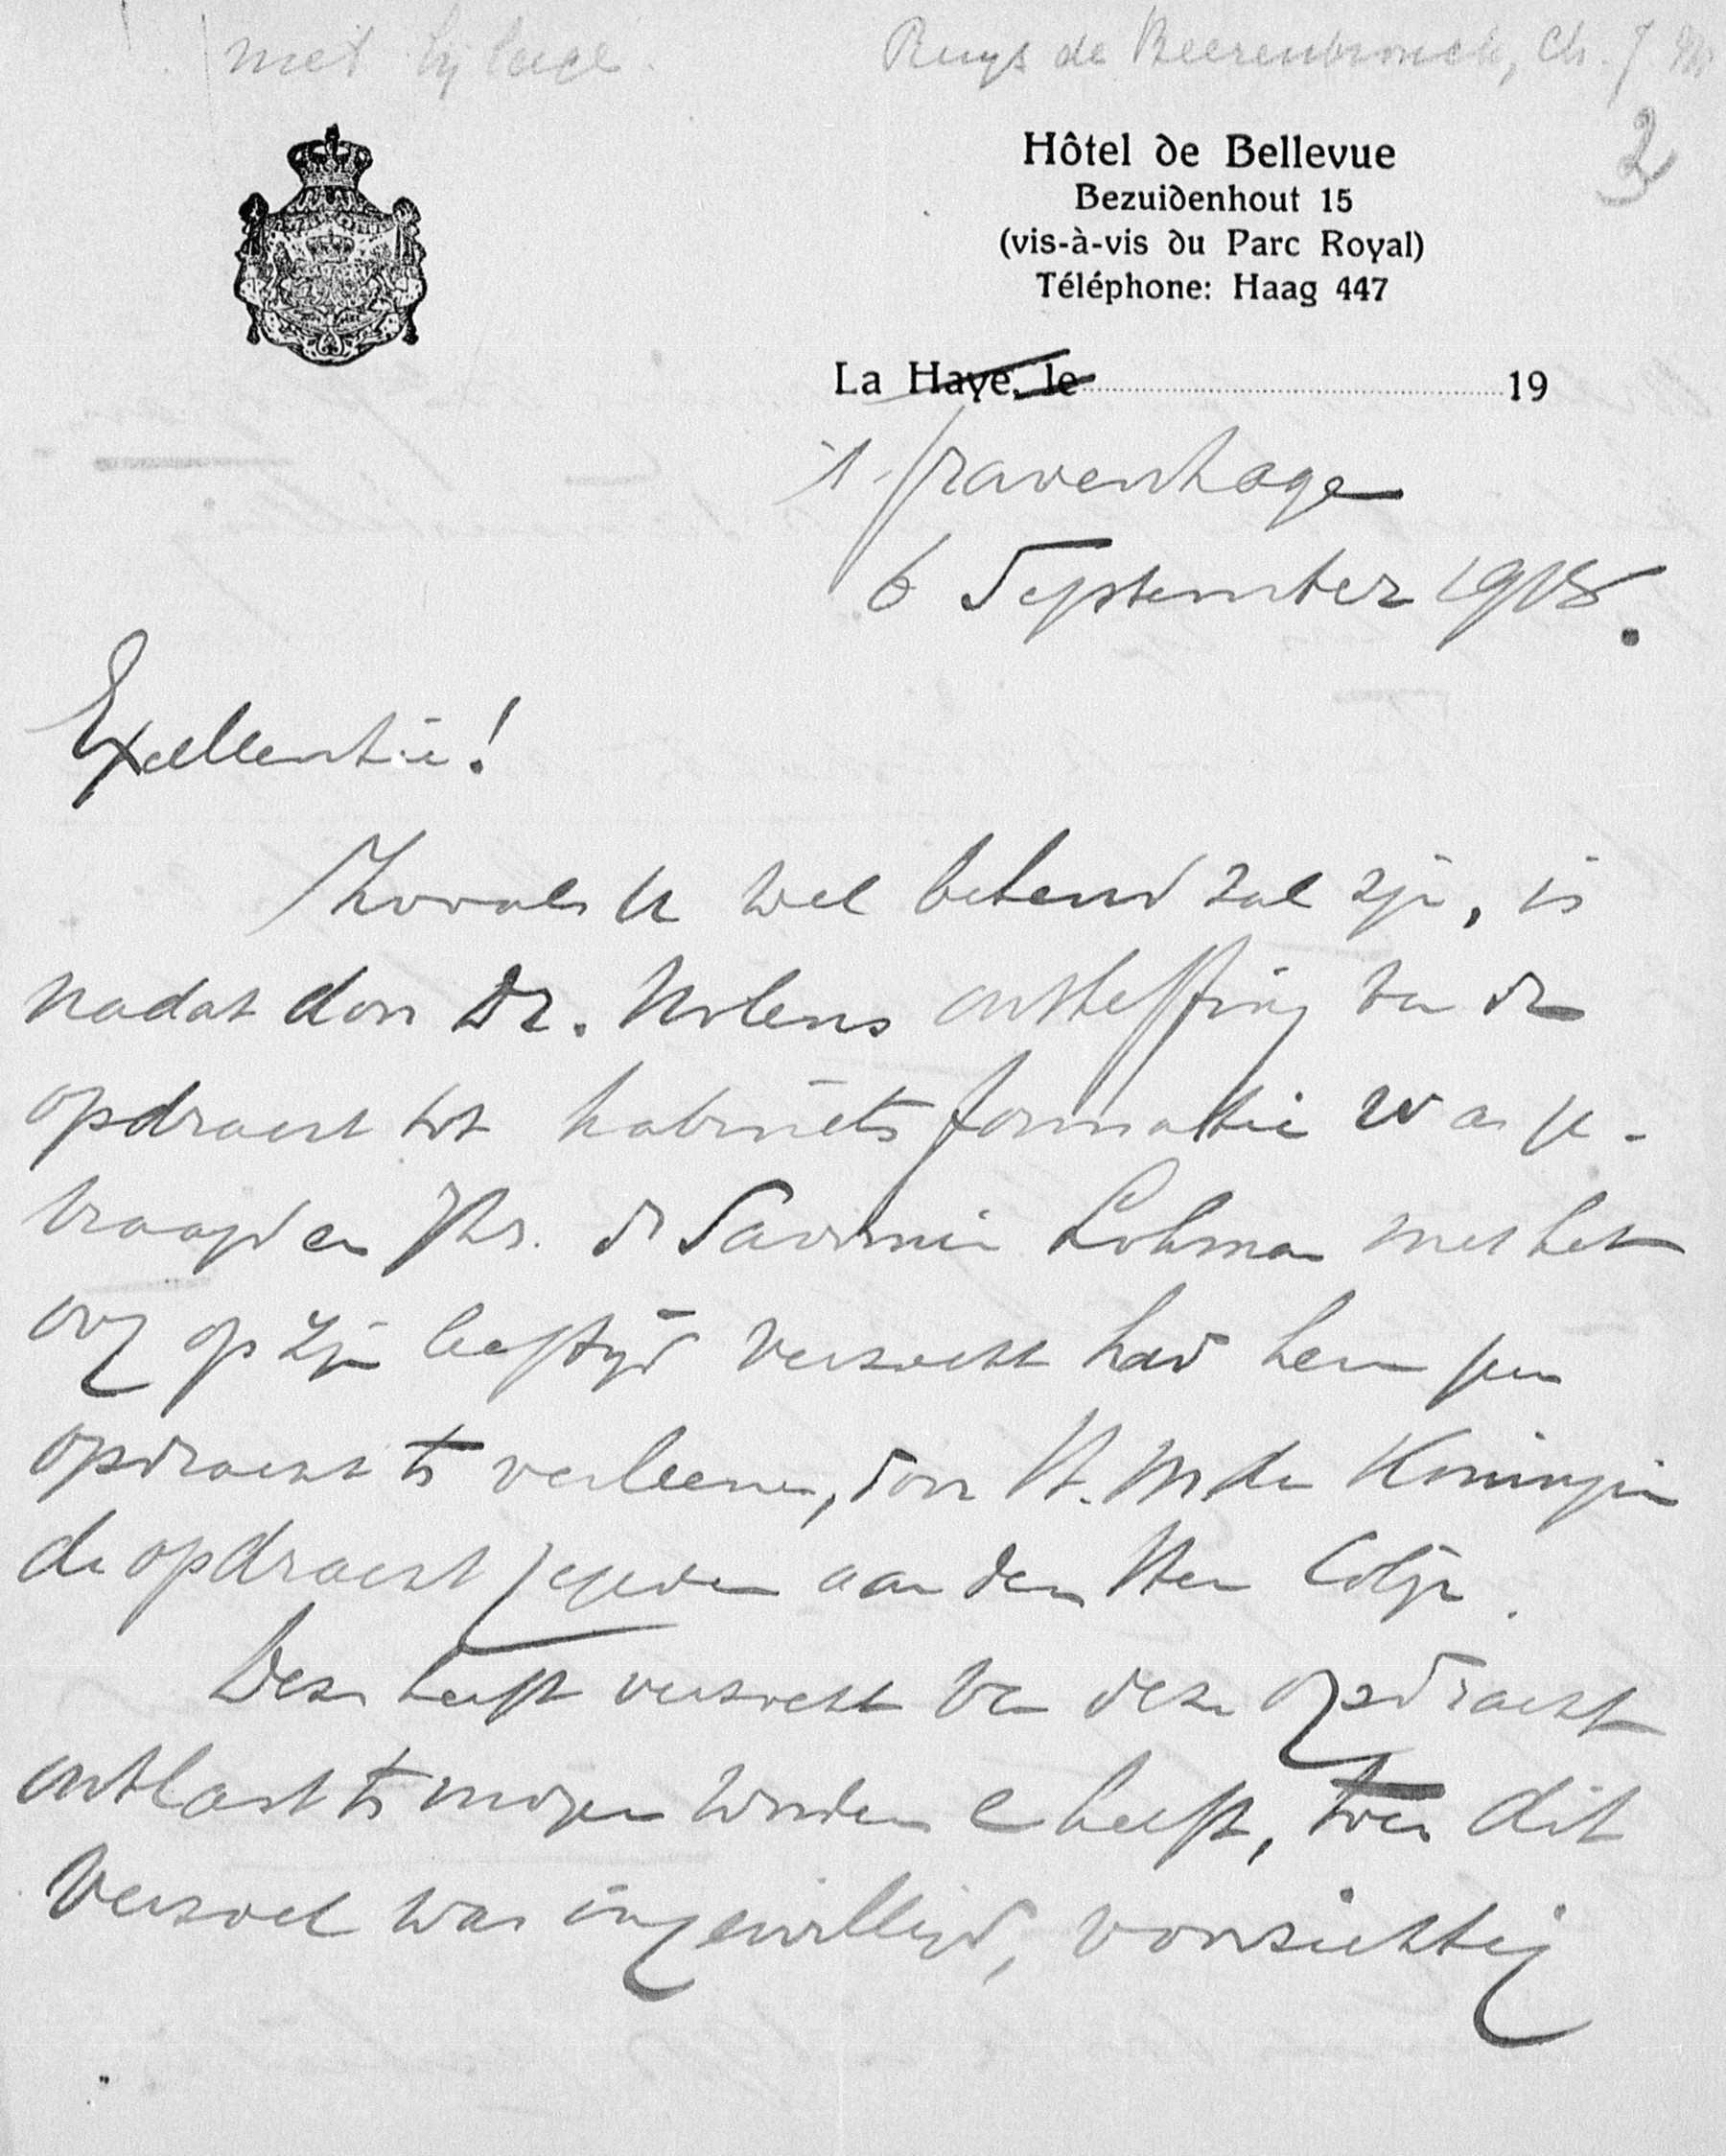 met bijlage.
Ruys de Beerenbrouck, Ch. J. M.
2
Hôtel de Bellevue
Bezuidenhout 15
(vis-à-vis du Parc Royal)
Téléphone: Haag 447
La Haye, le 19
's-Gravenhage
6 September 1918.
Excellentie!
Zooals U wel bekend zal zijn, is
nadat door Dr. Nolens ontheffing van de
opdracht tot kabinetsformatie was ge-
vraagd en Jhr. de Savornin Lohman met het
oog op zijn leeftijd verzocht had hem geen
opdracht te verleenen, door H. M. de Koningin
de opdracht gegeven aan den Heer Colijn.
Deze heeft verzocht van deze opdracht
ontlast te mogen worden en heeft, toen dit
verzoek was ingewilligd, voorzichtig